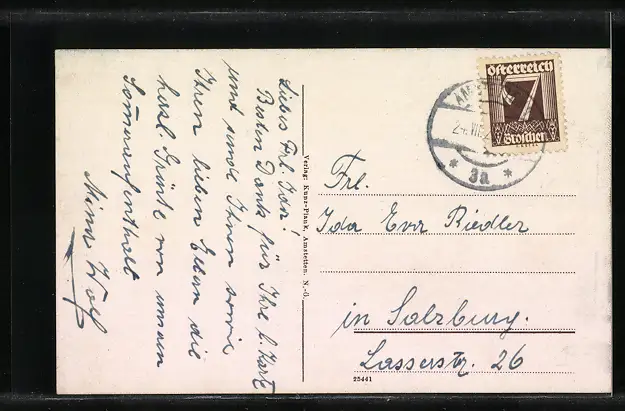 Liebes Frl. Ida!
Besten Dank für Ihre l. Karte
und sende Ihnen sowie
Ihren lieben Eltern die
herzl. Grüße von unseren
Sommerenthalt
Mina Wolf
Verlag: Kunz-Plank, Amstetten, N.-Ö.
Österreich
7
Groschen
24. VII.
* 3a *
Frl.
Ida Eva Riedler
in Salzburg.
Lasserstr. 26
25441